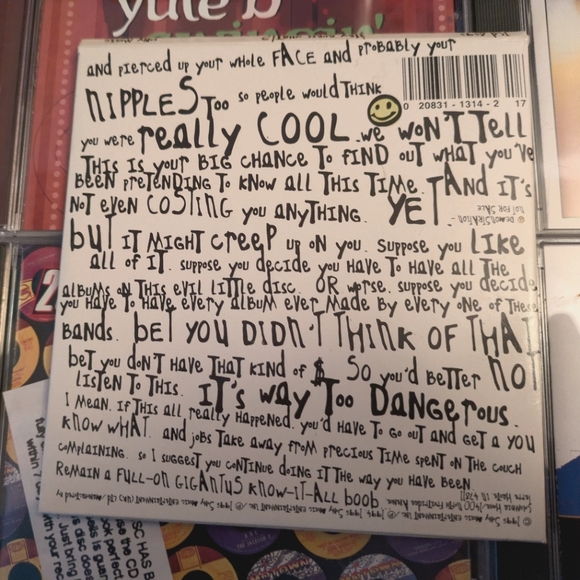 yule b
and pierced up your whole FACE and probably your
NIPPLES Too so people would THINK
you were really COOL we WON'T TELL
THIS IS your BIG chance To find out what you've
Been pretending to know all THIS TIME. And IT'S
NOT even COSTING you anyThing. YET.
0 20831-1314-2 17
DEMONSTRATION -
NOT FOR SALE
but IT MIGHT creep up on you. suppose you LIKE
all of IT. suppose you decide you Have to Have all The
albums on THIS evil little disc. OR worse. suppose you decide
you Have to Have every album ever made by every one of these
bands. beT you DIDN'T THINK OF THAT
beT you don'T Have THAT kind of $. So you'd beTTer NOT
LISTEN To THIS. IT'S way Too Dangerous.
I mean. if THIS all really Happened. you'd Have To go ouT and geT a you
know wHaT. and jobs Take away from precious Time spent on The couch
complaining. so I suggesT you conTinue doing iT THe way you Have been
Remain a full-on gigantus know-iT-all boob.